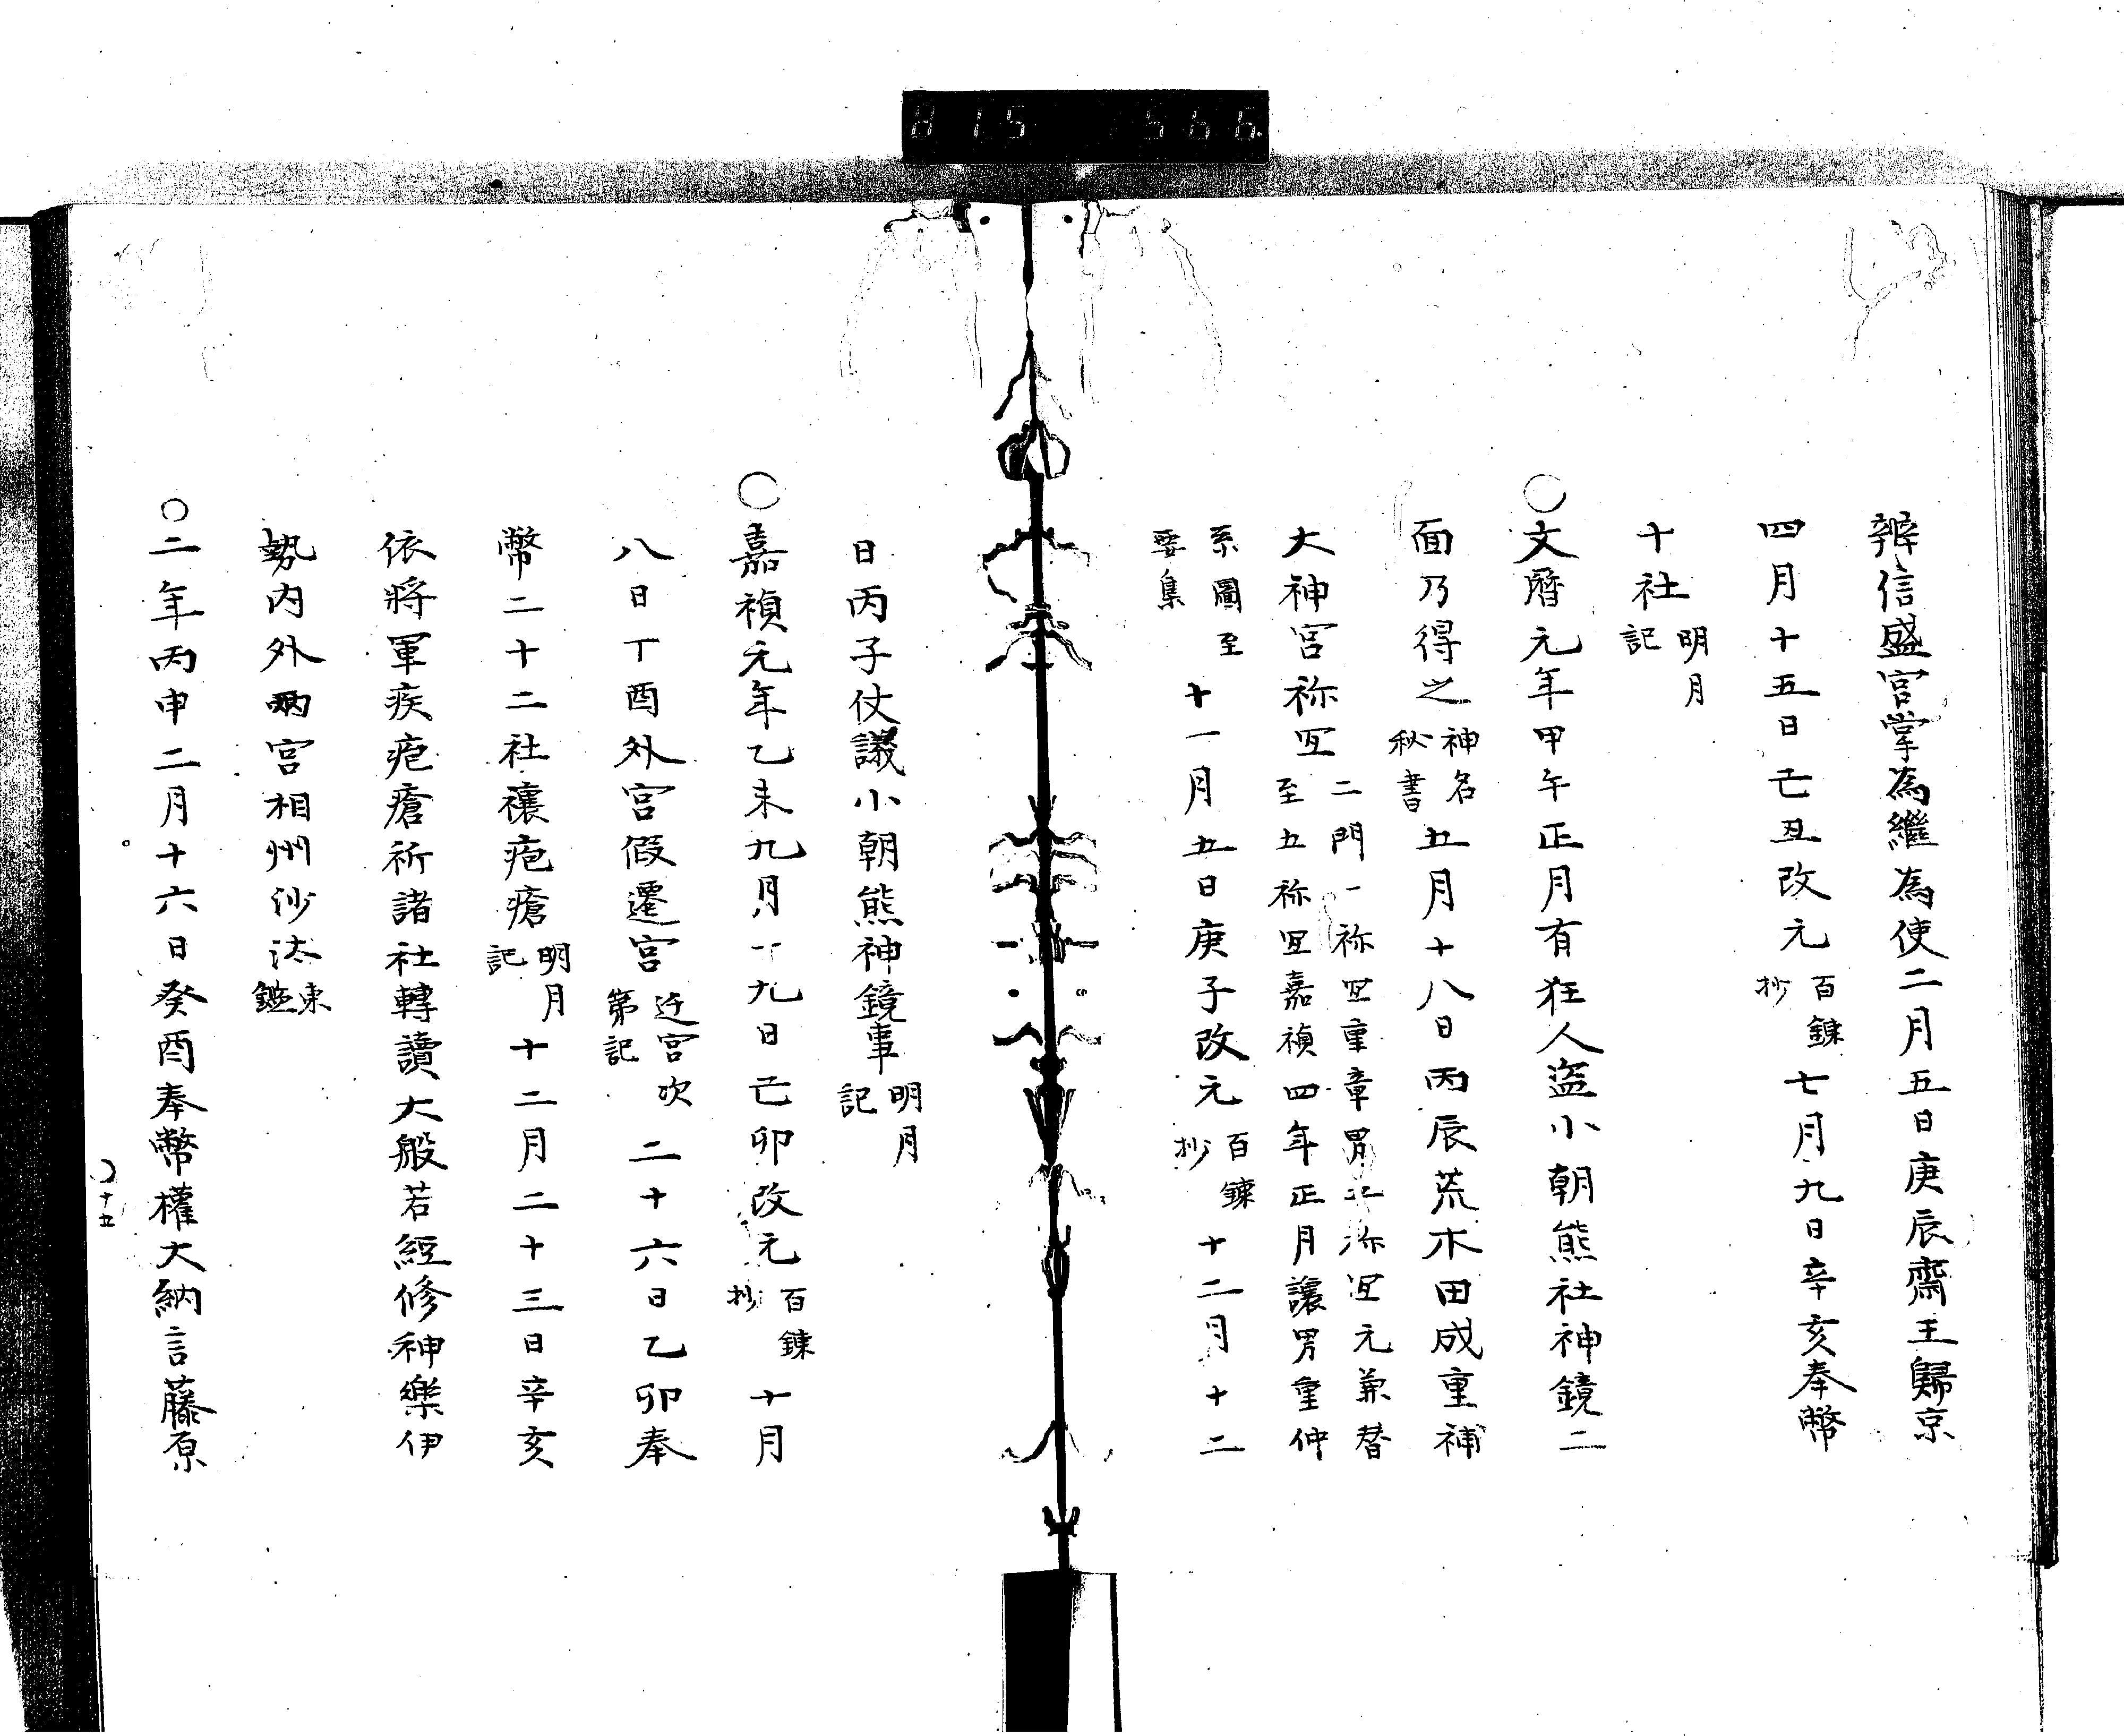 815 566.
辨信盛宮掌為継為使二月五日庚辰齋王歸京
四月十五日己丑改元百錬抄七月九日辛亥奉幣
十社明月記
〇文暦元年甲午正月有狂人盗小朝熊社神鏡二
面乃得之神名秘書五月十八日丙辰荒木田成重補
大神宮祢宜二門一祢宜重章男二祢宜元兼替至五祢宜嘉禎四年正月譲男重仲
系圖至要集 十一月五日庚子改元百錬抄十二月十二
日丙子仗議小朝熊神鏡事明月記
〇嘉禎元年乙未九月十九日己卯改元百錬抄十月
八日丁酉外宮假遷宮迁宮次第記二十六日乙卯奉
幣二十二社禳疱瘡明月記十二月二十三日辛亥
依将軍疾疱瘡祈諸社轉讀大般若經修神樂伊
勢内外両宮相州沙汰東鑑
〇二年丙申二月十六日癸酉奉幣權大納言藤原
十五